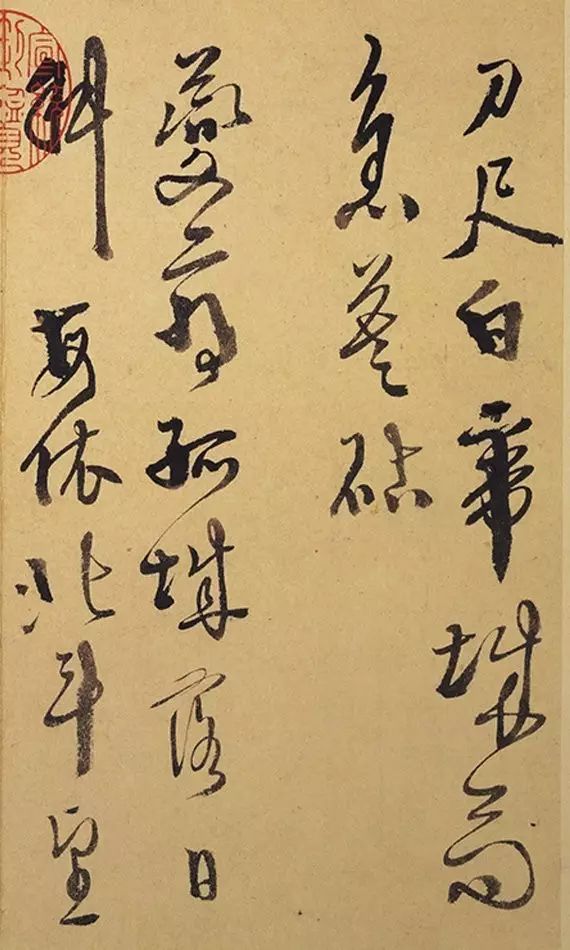 刀尺白帝城高
急暮砧
夔府孤城落日
斜每依北斗望